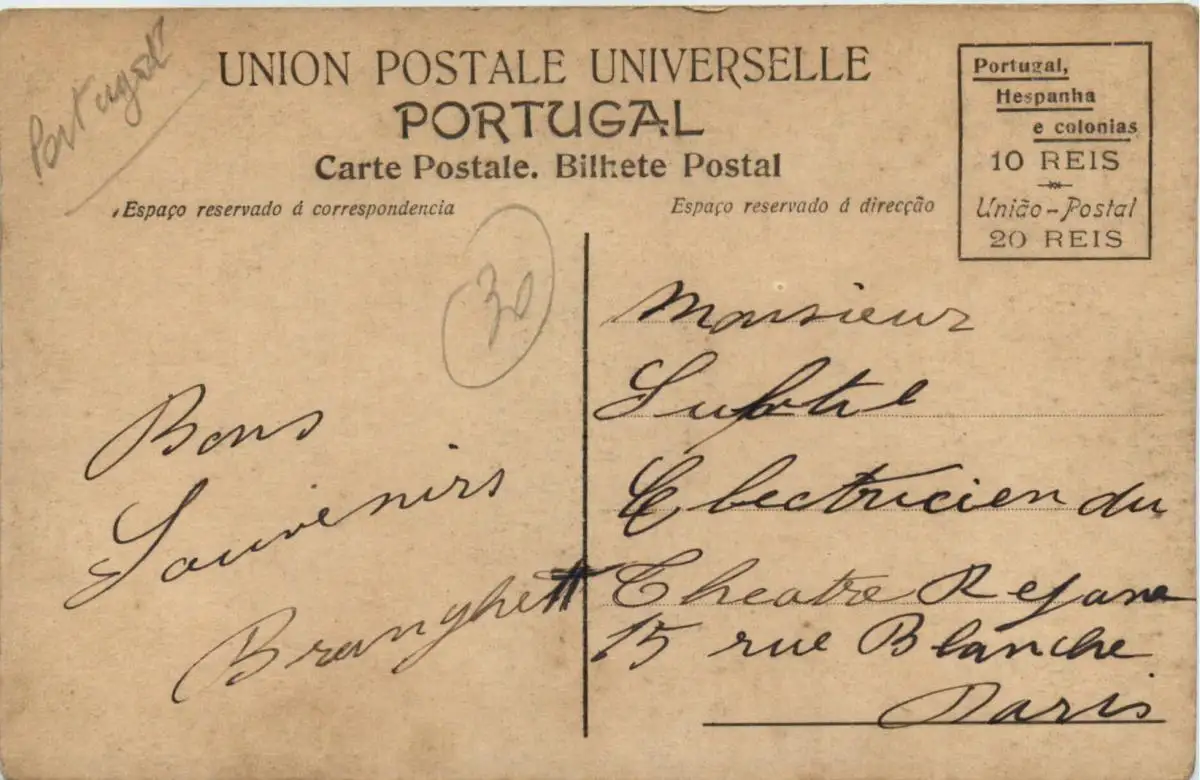 Portugal
UNION POSTALE UNIVERSELLE
PORTUGAL
Carte Postale. Bilhete Postal
Espaço reservado á correspondencia
Espaço reservado á direcção
Portugal,
Hespanha
e colonias
10 REIS
União-Postal
20 REIS
30
Bons
Souvenirs
Monsieur
Electricien du
Theatre Rejane
15 rue Blanche
Paris